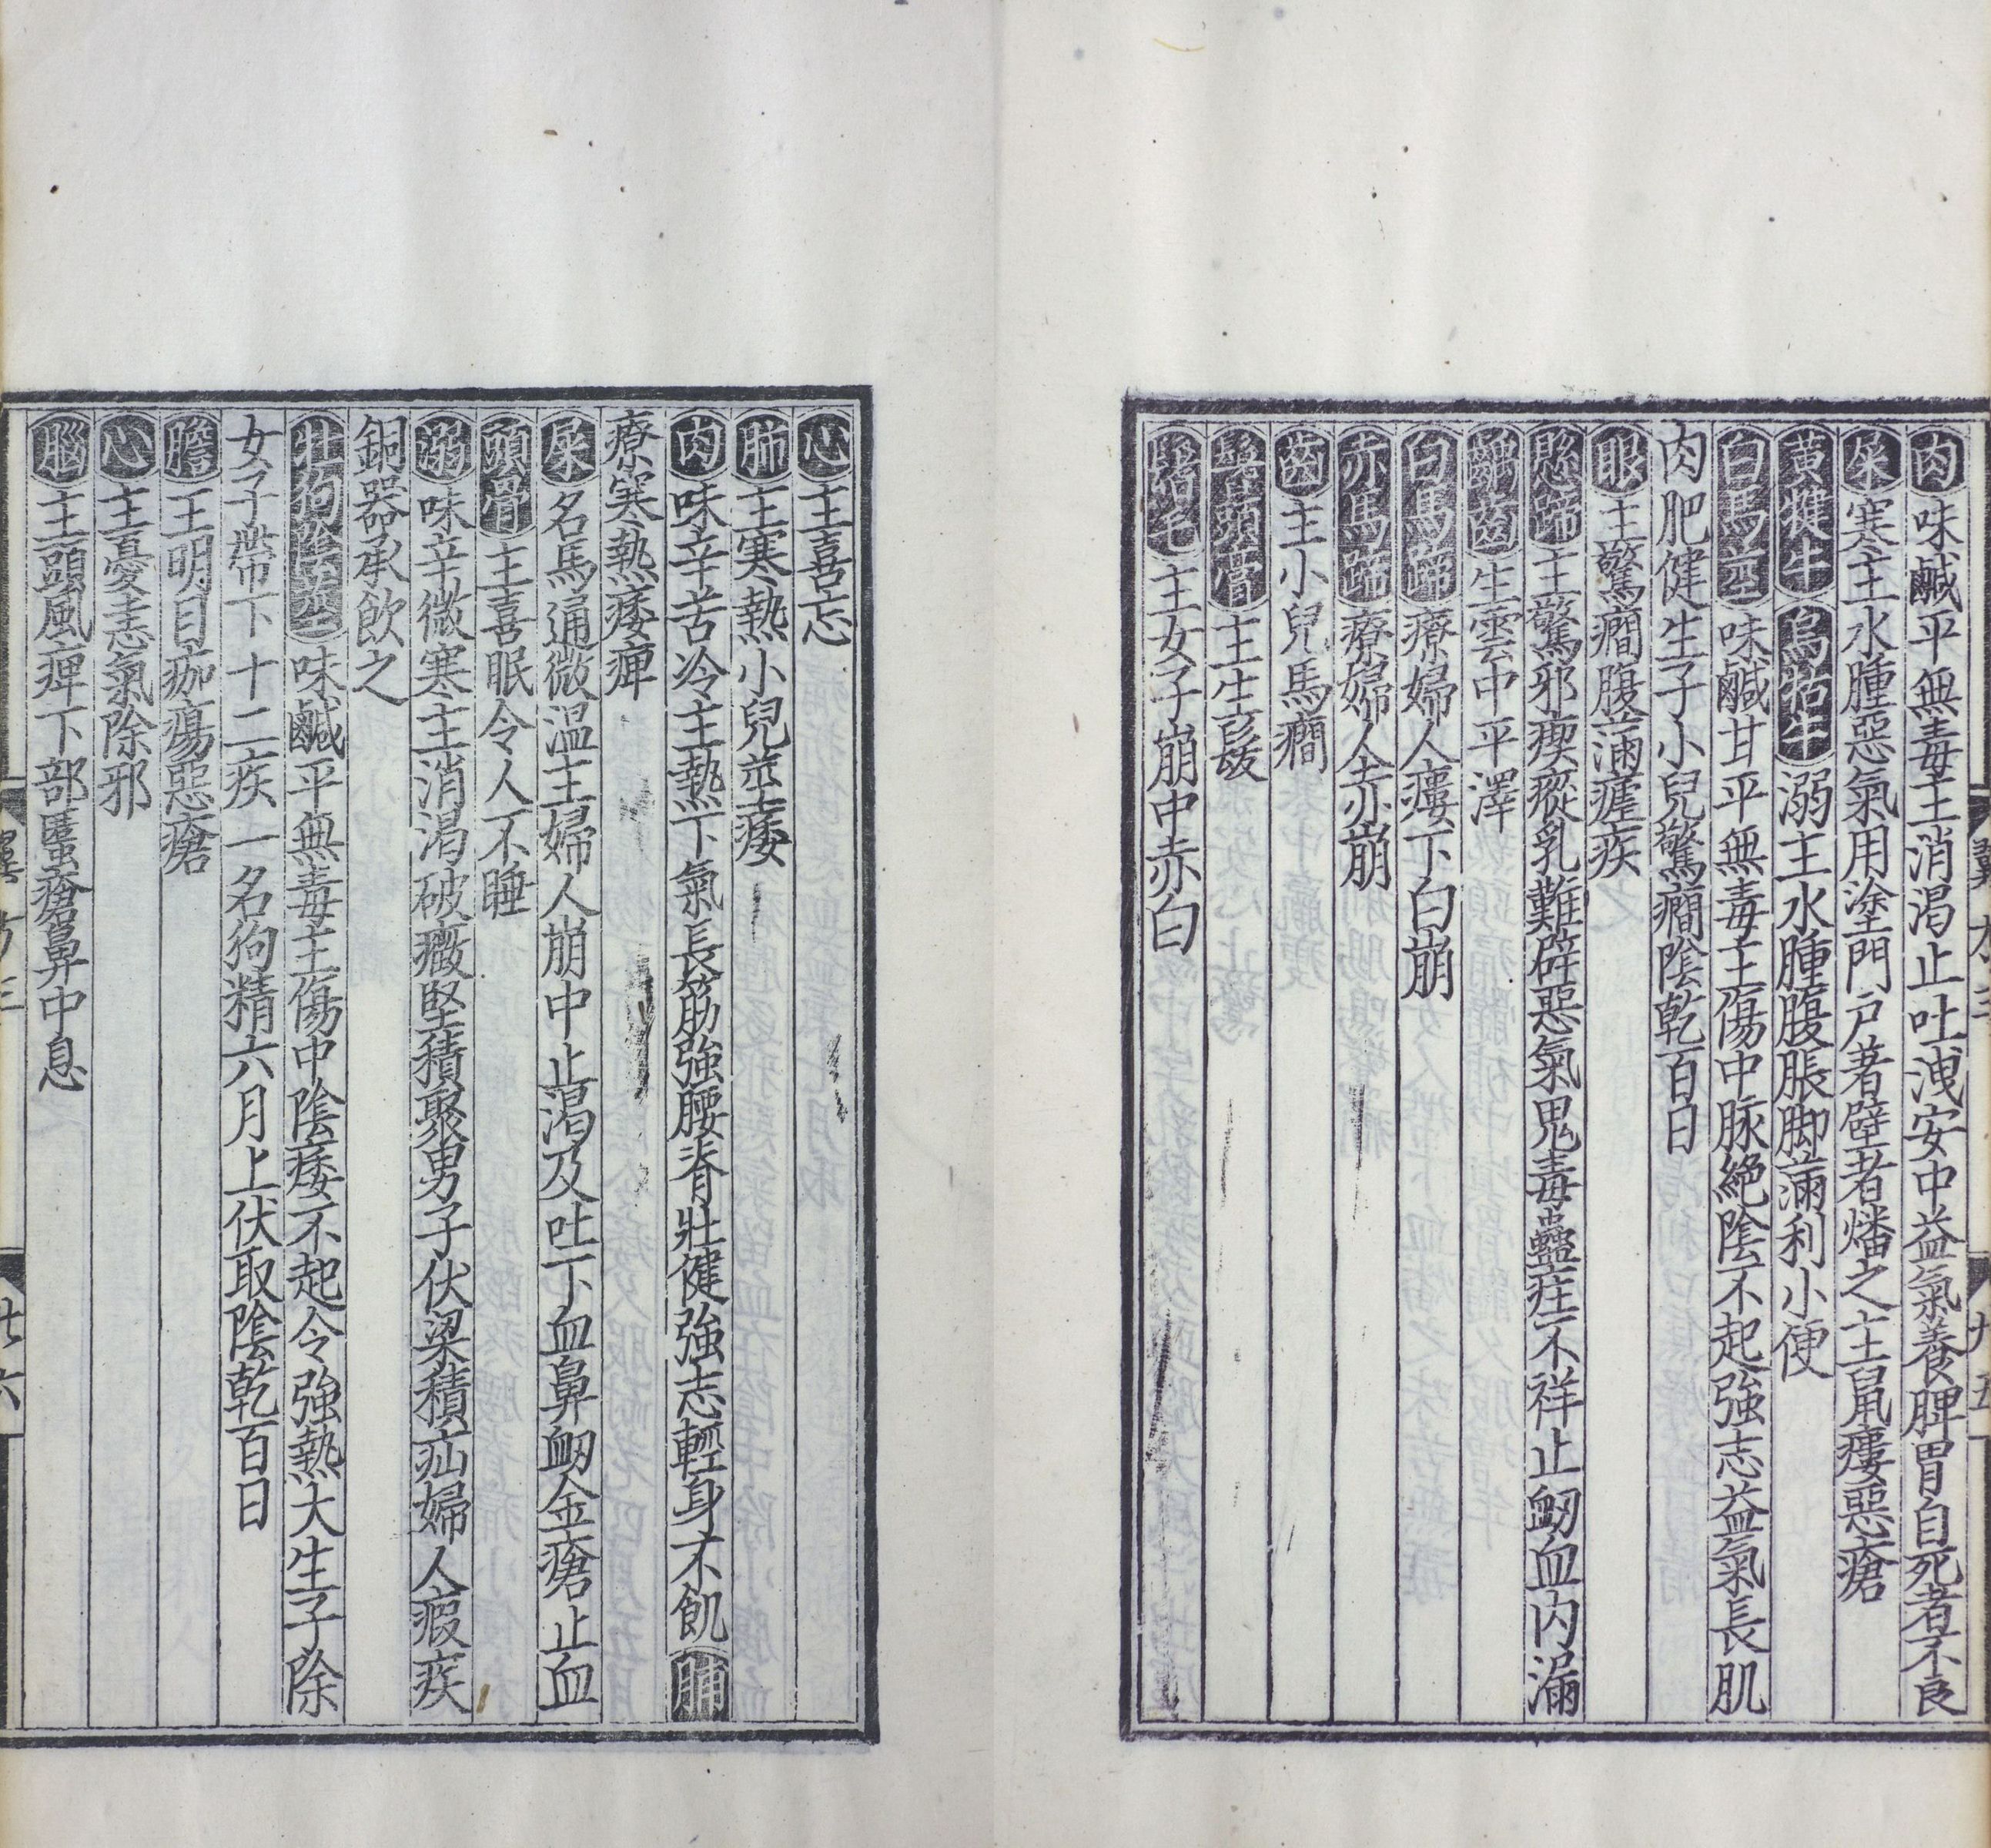 肉味鹹平無毒主消渴止吐洩安中益氣養脾胃自死者不良
屎寒主水腫惡氣用塗門戶著壁者燔之主鼠瘻惡瘡
黃犍牛烏牯牛溺主水腫腹脹脚滿利小便
白馬莖味鹹甘平無毒主傷中脉絕陰不起強志益氣長肌
肉肥健生子小兒驚癇陰乾百日
眼主驚癇腹滿瘧疾
懸蹄主驚邪瘈瘲乳難辟惡氣鬼毒蠱疰不祥止衂血內漏
齲齒生雲中平澤
白馬蹄療婦人瘻下白崩
赤馬蹄療婦人赤崩
齒主小兒馬癇
鬐頭膏主生髮
鬐毛主女子崩中赤白
心主喜忘
肺主寒熱小兒莖痿
肉味辛苦冷主熱下氣長筋強腰脊壯健強志輕身不飢脯
療寒熱痿痺
屎名馬通微溫主婦人崩中止渴及吐下血鼻衂金瘡止血
頭骨主喜眠令人不睡
溺味辛微寒主消渴破癥堅積聚男子伏梁積疝婦人瘕疾
銅器承飲之
牡狗陰莖味鹹平無毒主傷中陰痿不起令強熱大生子除
女子帶下十二疾一名狗精六月上伏取陰乾百日
膽主明目痂瘍惡瘡
心主憂恚氣除邪
腦主頭風痺下部䘌瘡鼻中息